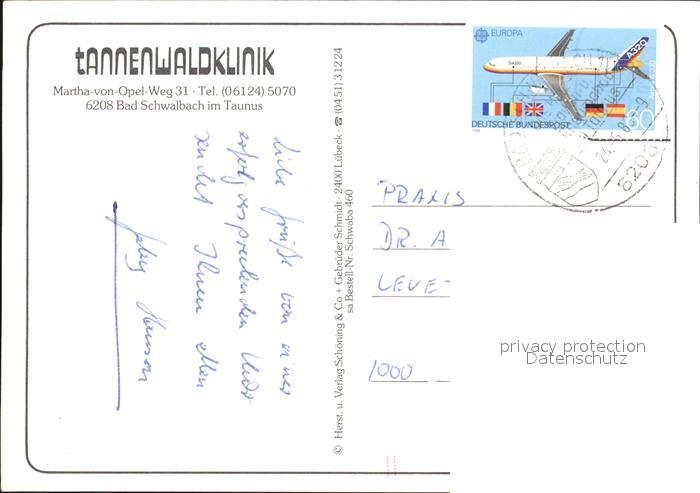 tANNENWALDKLINIK
Martha-von-Opel-Weg 31 · Tel. (06124) 5070
6208 Bad Schwalbach im Taunus
liebe Grüße von einer
erfolgversprechenden
sendet Ihnen allen
© Herst. u. Verlag Schöning & Co + Gebrüder Schmidt · 2400 Lübeck · ☎ (0451) 31224
sa Bestell-Nr. Schwaba 460
EUROPA
A320
DEUTSCHE BUNDESPOST
60
6208
PRAXIS
DR. A
LEVE-
1000
privacy protection
Datenschutz